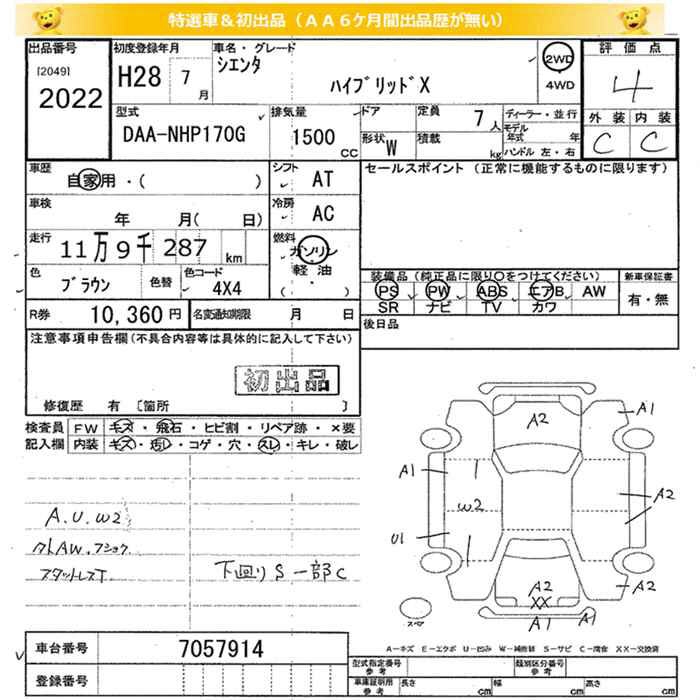 特選車＆初出品（ＡＡ６ケ月間出品歴が無い）
出品番号 初度登録年月 車名・グレード 評価点
[2049] シエンタ 2WD
2022 H28 7月 ハイブリッドX 4WD 4
型式 排気量 ドア 定員 7人 ディーラー・並行 外装 内装
DAA-NHP170G 1500 CC 形状 W 積載 kg モデル年式 年 C C
ハンドル 左・右
車歴 自家用・( ) シフト AT セールスポイント（正常に機能するものに限ります）
車検 年 月( 日) 冷房 AC
走行 11万9千287 km 燃料 ガソリン
軽油
( )
色 ブラウン 色替 色コード 4X4 装備品（純正品に限り〇をつけてください） 新車保証書
PS PW ABS エアB AW 有・無
SR ナビ TV カワ
R券 10,360円 名変通知期限 月 日 後日品
注意事項申告欄(不具合内容等は具体的に記入して下さい)
初出品
修復歴 有 〔箇所 〕
検査員 FW キズ・飛石・ヒビ割・リペア跡・×要
記入欄 内装 キズ・汚レ・コゲ・穴・スレ・キレ・破レ
A2 A1
A1 W2 A2
U1
A.U.W2
下廻りS一部C
A2 A2
XX
A1 A1
A－キズ E－エクボ U－凹み W－補修跡 S－サビ C－腐食 XX－交換済
車台番号 7057914
登録番号
型式指定番号 参考 類別区分番号 参考
車庫証明用 参考 長さ cm 幅 cm 高さ cm